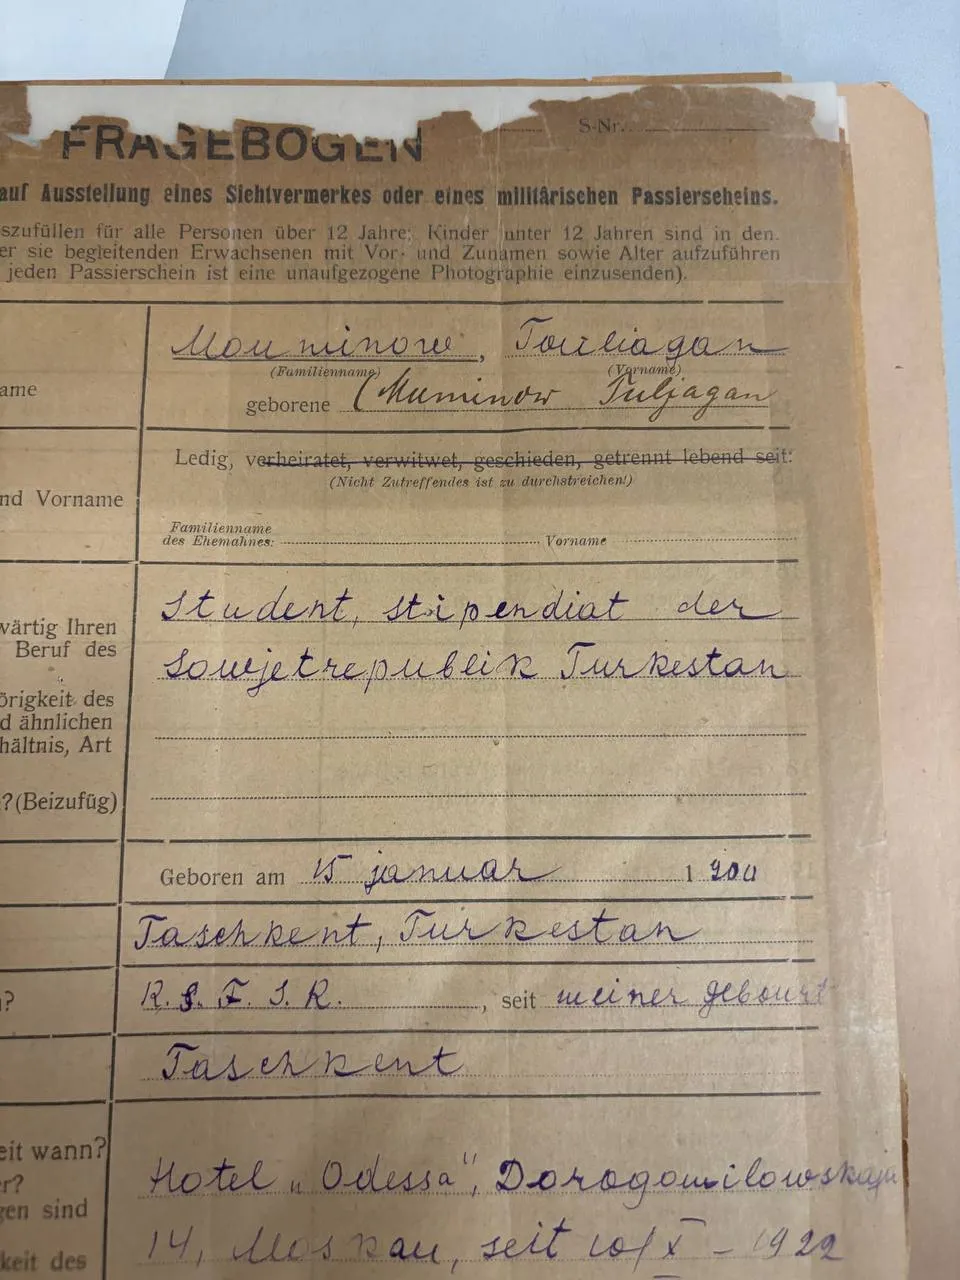 FRAGEBOGEN
S-Nr.
auf Ausstellung eines Sichtvermerkes oder eines militärischen Passierscheins.
szufüllen für alle Personen über 12 Jahre; Kinder unter 12 Jahren sind in den
er sie begleitenden Erwachsenen mit Vor- und Zunamen sowie Alter aufzuführen
jeden Passierschein ist eine unaufgezogene Photographie einzusenden).
Mouminow, Touliagan
(Familienname) (Vorname)
ame
geborene (Muminow Tuljagan
Ledig, verheiratet, verwitwet, geschieden, getrennt lebend seit:
(Nicht Zutreffendes ist zu durchstreichen!)
nd Vorname
Familienname
des Ehemahnes: Vorname
Student, stipendiat der
wärtig Ihren
Beruf des
Sowjetrepublik Turkestan
örigkeit des
d ähnlichen
hältnis, Art
?(Beizufüg)
Geboren am 15 januar 1900
Taschkent, Turkestan
? R. S. F. S. R., seit meiner gebourt
Taschkent
eit wann?
r?
Hotel „Odessa", Dorogomilowskaja
gen sind
14, Moskau, seit 10/X – 1922
keit des